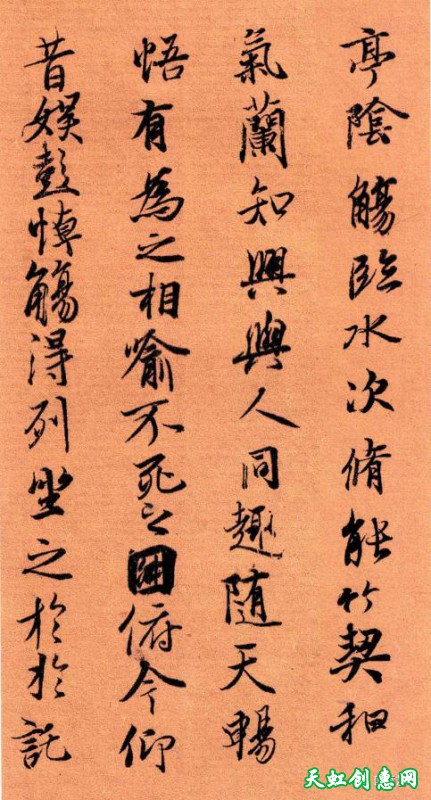 亭陰觴臨水次脩能竹契和
氣蘭知興與人同趣隨天暢
悟有為之相喻不死俯今仰
昔娛彭悼觴得列坐之於於託
天虹创惠网